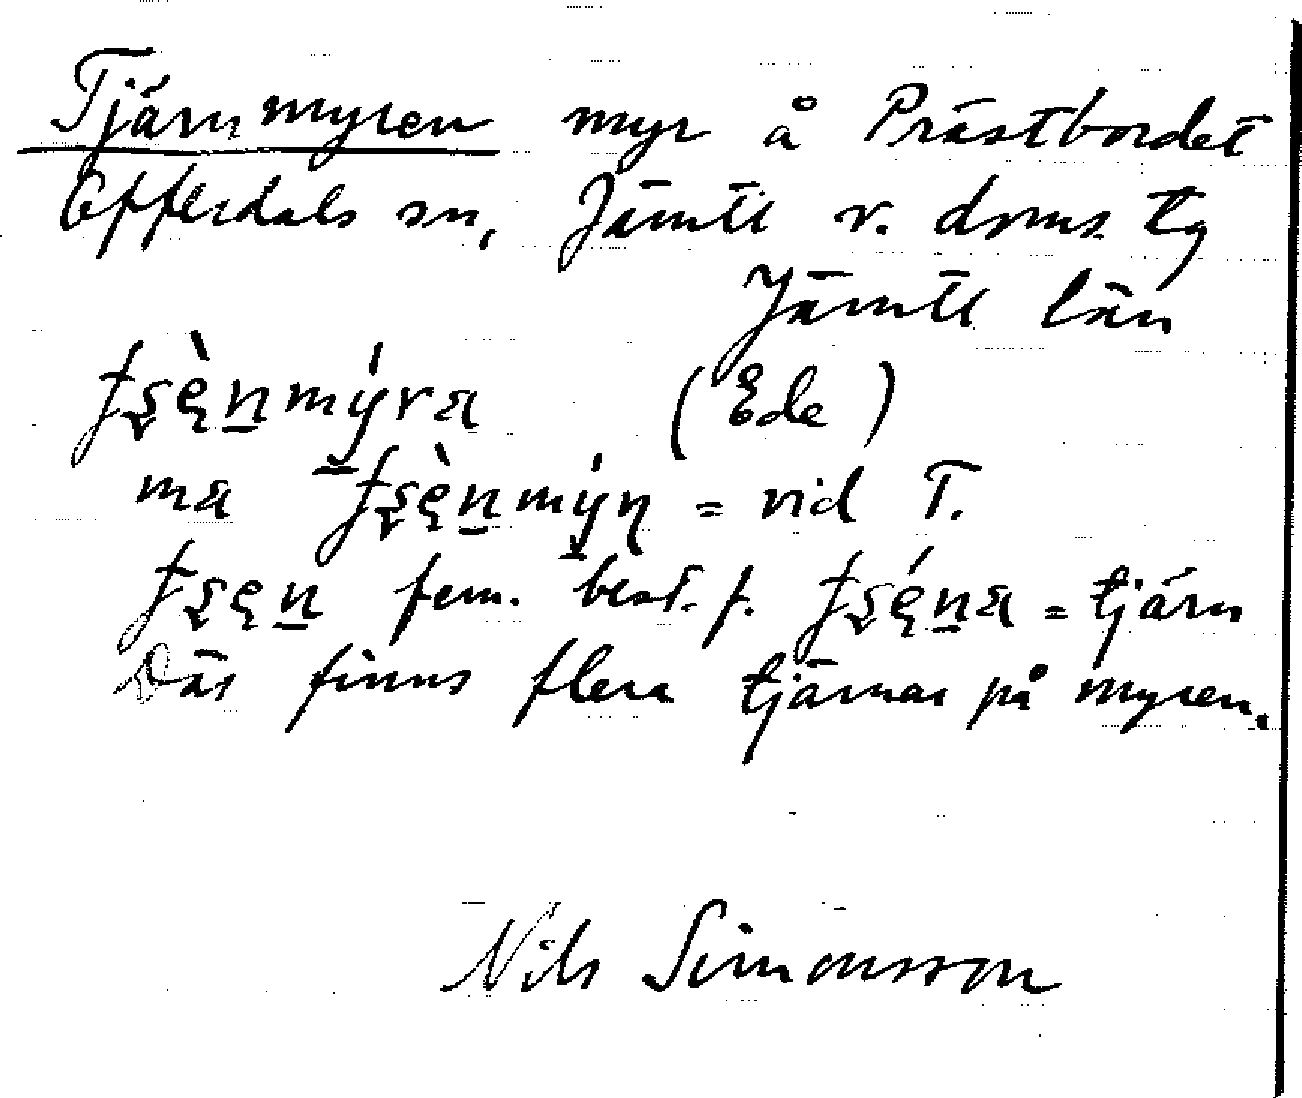 Tjärnmyren myr å Prästbordet
Offerdals sn, Jämtl v. doms. tg
Jämtl län
(Ede)
ma = vid T.
fem. best. f. = tjärn
Där finns flera tjärnar på myren.
Nils Simonsson